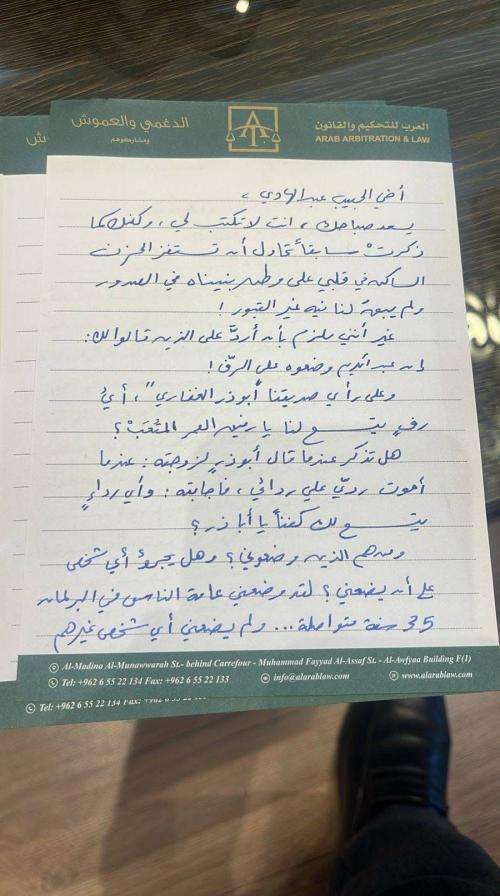 الدغمي والعموش
ومشاركوهم
العرب للتحكيم والقانون
ARAB ARBITRATION & LAW
أخي الحبيب عبدالهادي،
يسعد صباحك، انت لا تكتب لي، ولكنك كما
ذكرتُ سابقاً تحاول أن تستفز الحزن
الساكن في قلبي على وطن بنيناه في الصدور
ولم يبق لنا فيه غير القبور!
غير أنني ملزم بأن أردَّ على الذين قالوا لك:
إن عبدالكريم وضعوه على الرّف!
وعلى رأي صديقنا "أبوذر الغفاري"، أيُ
رفٍ يتسع لنا يا رفيق العمر المُتعَبْ؟
هل تذكر عندما قال أبوذرٍ لزوجته: عندما
أموت ردّي علي ردائي، فأجابته: وأي رداءٍ
يتسع لك كفناً يا أبا ذر؟
ومن هم الذين وضعوني؟ وهل يجرؤ أي شخص
على أن يضعني؟ لقد وضعني عامة الناس في البرلمان
35 سنة متواصلة... ولم يضعني أي شخص غيرهم
Al-Madina Al-Munawwarah St.- behind Carrefour - Muhammad Fayyad Al-Assaf St. - Al-Awfyaa Building F(1)
Tel: +962 6 55 22 134 Fax: +962 6 55 22 133 info@alarablaw.com www.alarablaw.com
Tel: +962 6 55 22 134 Fax: